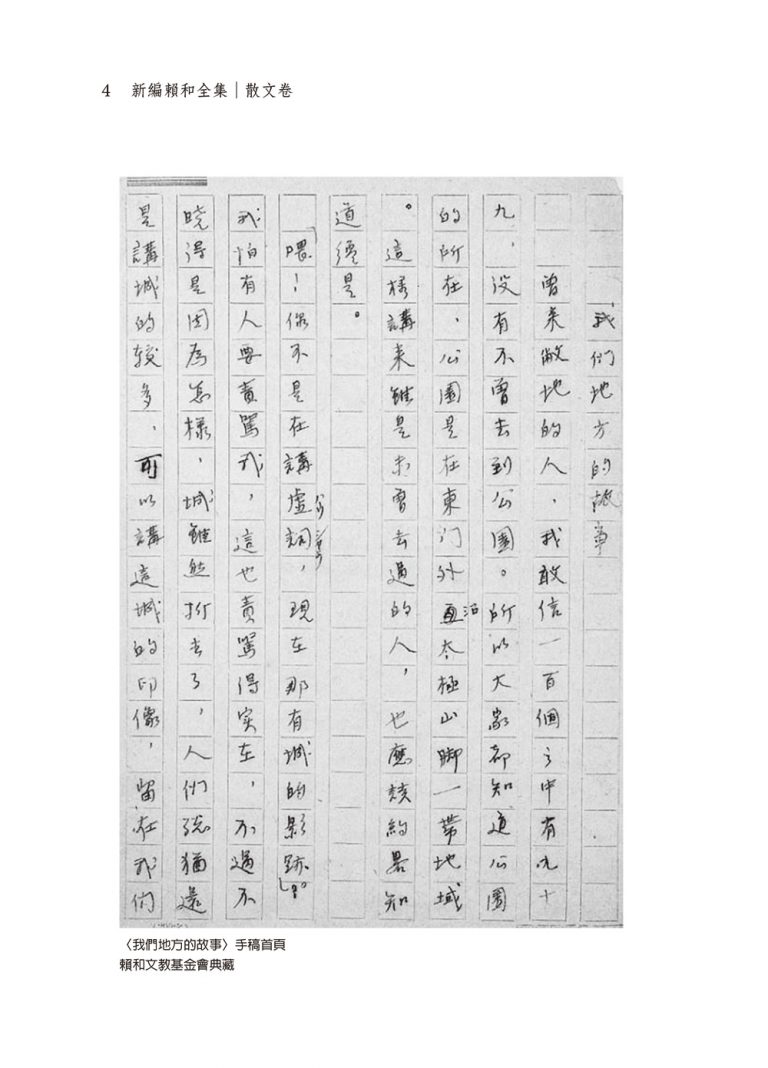 4 新編賴和全集｜散文卷
我們地方的故事
曾来敝地的人，我敢信一百個之中有九十
九，没有不曾去到公園。所以大家都知道公園
的所在，公園是在東门外直沿太極山脚一帶地域
。這樣講来雖是未曾去過的人，也應該約畧知
道纔是。
「喂！你不是在講虛詞，現在那有城的影跡」。
我怕有人要責駡我，這也責駡得实在，不過不
晓得是因為怎樣，城雖然折去了，人們猶還
是講城的较多，可以講這城的印像，留在我們
〈我們地方的故事〉手稿首頁
賴和文教基金會典藏